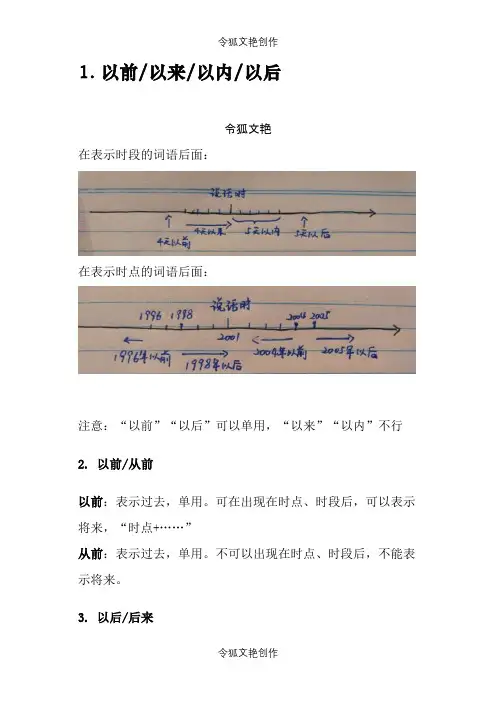 令狐文艳创作
1.以前/以来/以内/以后
令狐文艳
在表示时段的词语后面:
说话时
4天以前 4天以来 5天以内 5天以后
在表示时点的词语后面:
说话时
1996 1998 2004 2005
2001
1996年以前 1998年以后 2004年以前 2005年以后
注意:“以前”“以后”可以单用,“以来”“以内”不行
2. 以前/从前
以前:表示过去,单用。可在出现在时点、时段后,可以表示
将来,“时点+……”
从前:表示过去,单用。不可以出现在时点、时段后,不能表
示将来。
3. 以后/后来
令狐文艳创作